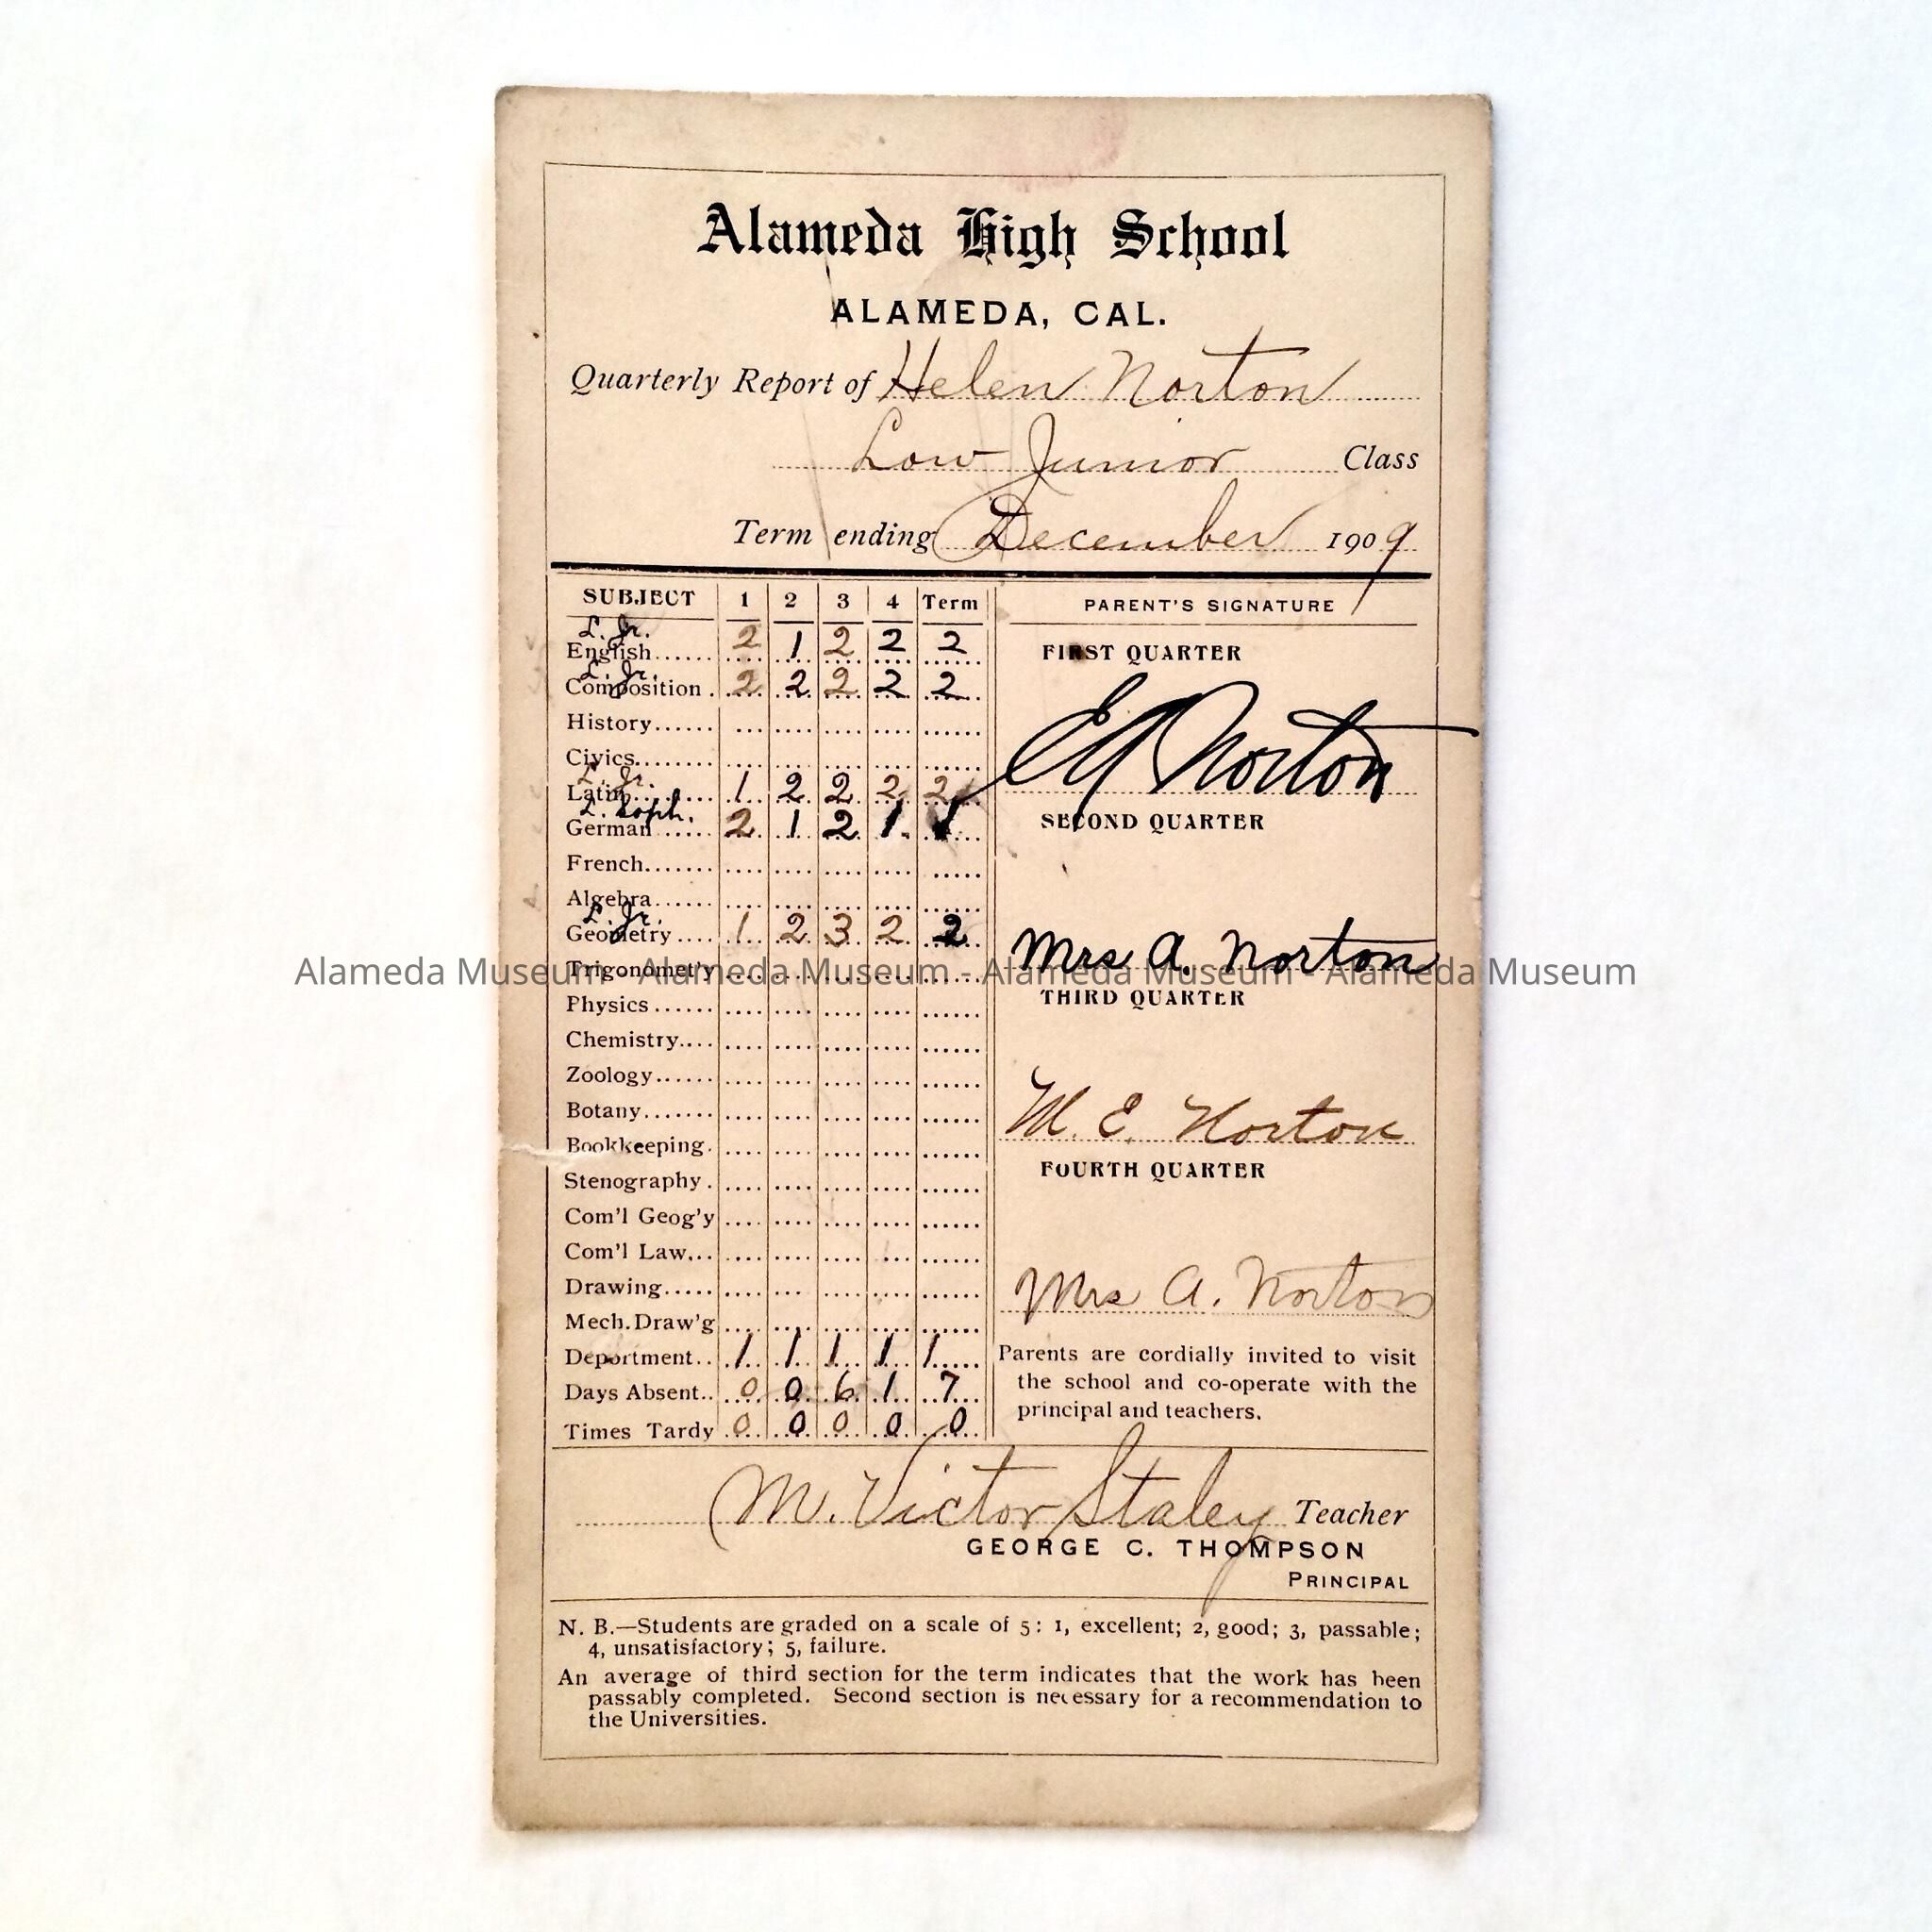 Alameda High School
ALAMEDA, CAL.
Quarterly Report of Helen Norton
Low Junior Class
Term ending December 1909
SUBJECT 1 2 3 4 Term
L. Jr.
English...... 2 1 2 2 2
L. Jr.
Composition . 2 2 2 2 2
History......
Civics.......
L. Jr.
Latin........ 1 2 2 2 2
L. Soph.
German ..... 2 1 2 1
French.......
Algebra......
L. Jr.
Geometry .... 1 2 3 2 2
Trigonomet'y
Physics ......
Chemistry....
Zoology......
Botany.......
Bookkeeping.
Stenography .
Com'l Geog'y
Com'l Law...
Drawing.....
Mech.Draw'g
Deportment.. 1 1 1 1 1
Days Absent.. 0 0 6 1 7
Times Tardy 0 0 0 0 0
PARENT'S SIGNATURE
FIRST QUARTER
Norton
SECOND QUARTER
Mrs A. Norton
THIRD QUARTER
M. E. Norton
FOURTH QUARTER
Mrs A. Norton
Parents are cordially invited to visit
the school and co-operate with the
principal and teachers.
M. Victor Staley Teacher
GEORGE C. THOMPSON
PRINCIPAL
N. B.—Students are graded on a scale of 5: 1, excellent; 2, good; 3, passable;
4, unsatisfactory; 5, failure.
An average of third section for the term indicates that the work has been
passably completed. Second section is necessary for a recommendation to
the Universities.
Alameda Museum - Alameda Museum - Alameda Museum - Alameda Museum